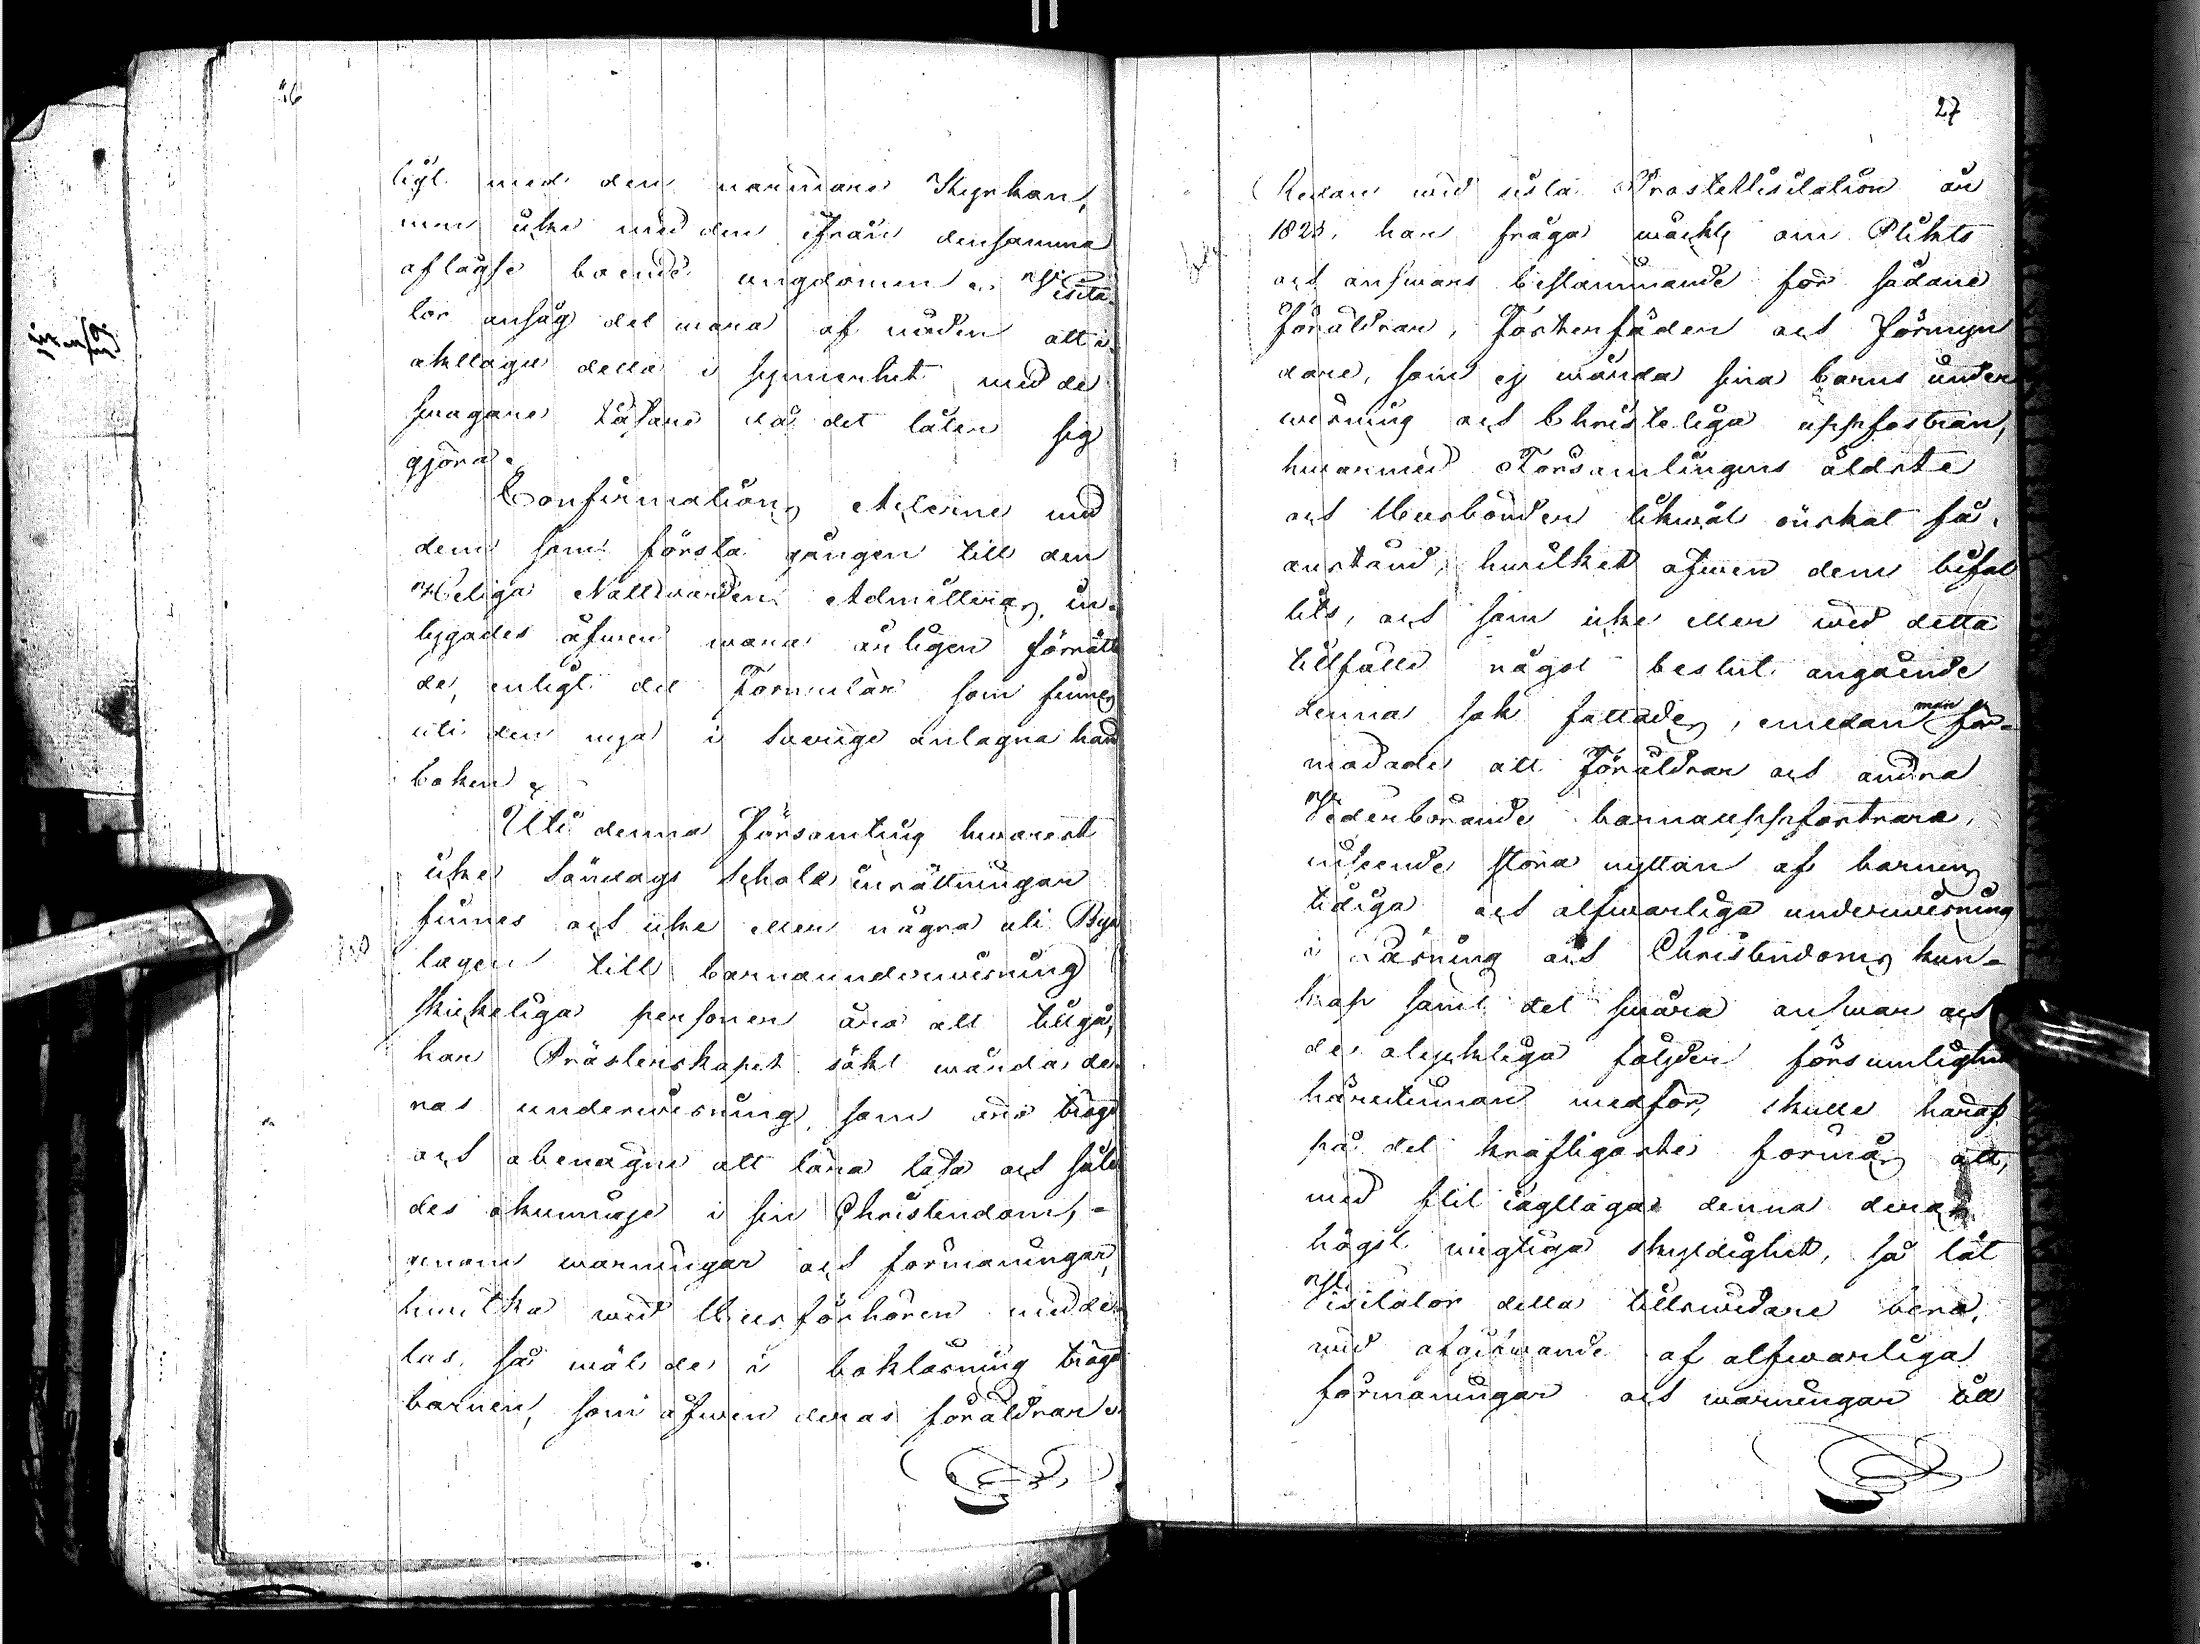 26
ligt med den närmare Kyrkan,
men icke med den ifrån densamma
aflägse boende ungdomen. Visita-
tor ansåg det wara af nöden att i-
akttaga detta i synnerhet med de
swagare läsare då det låter sig
gjöra.
Confirmations Acterne med
dem som första gången till den
Heliga Nattwarden Admitteras, in-
tygades äfwen wara årligen förrätta
de, enligt det Formulär som finnes
uti den nya i Swerige antagna hand
boken.
Uti denna Församling hwarest
icke Söndags Schole inrättningar
finnes och icke eller några uti Bya
lagen till barnaunderwisning
skickeliga personer äro att tillgå,
har Prästerskapet sökt wårda de-
ras underwisning, som äro tröge
och obenägne att lära läsa och såle
des okunnige i sin Christendom,
genom warningar och förmaningar,
hwilka wid Husförhören medde-
las, så wäl de i bokläsning tröge
barnen, som äfwen deras föräldrar.
27
Redan wid sista Prostevisitation år
1823, har fråga wäckts om Plikts
och answars bestämmande för sådane
Föräldrar, Fosterfäder och Förmyn
dare, som ej wårda sina barns under
wisning och Christeliga uppfostran,
hwarmed Församlingens äldste
och Husbönder likwäl önskat få
anstånd, hwilket äfwen dem bifal
lits, och som icke eller wid detta
tillfälle något beslut angående
denna sak fattades, emedan man för-
modade att Föräldrar och andra
Vederbörande barnauppfostrare,
inseende stora nyttan af barnens
tidiga och alfwarliga underwisning
i Läsning och Christendoms kun-
skap samt det swåra answar och
de olyckliga följder försumlighet
häruti­nnan medför, skulle häraf
på det kraftigaste förmås att,
med flit iagttaga denna deras
högst wigtiga skyldighet, så lät
Visitator detta tillswidare bero,
wid afgifwande af alfwarliga
förmaningar och warningar till